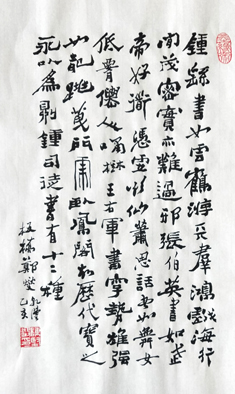 鍾繇書如雲鶴游天羣鴻戲海行
間茂密實亦難過邪張伯英書如武
帝好道憑虛欲仙蕭思話書如舞女
低腰僊人嘯樹王右軍書字勢雄強
如龍跳天門虎臥鳳閣故歷代寶之
永以為訓鍾司徒書有十二種
板橋鄭燮
乾隆乙亥